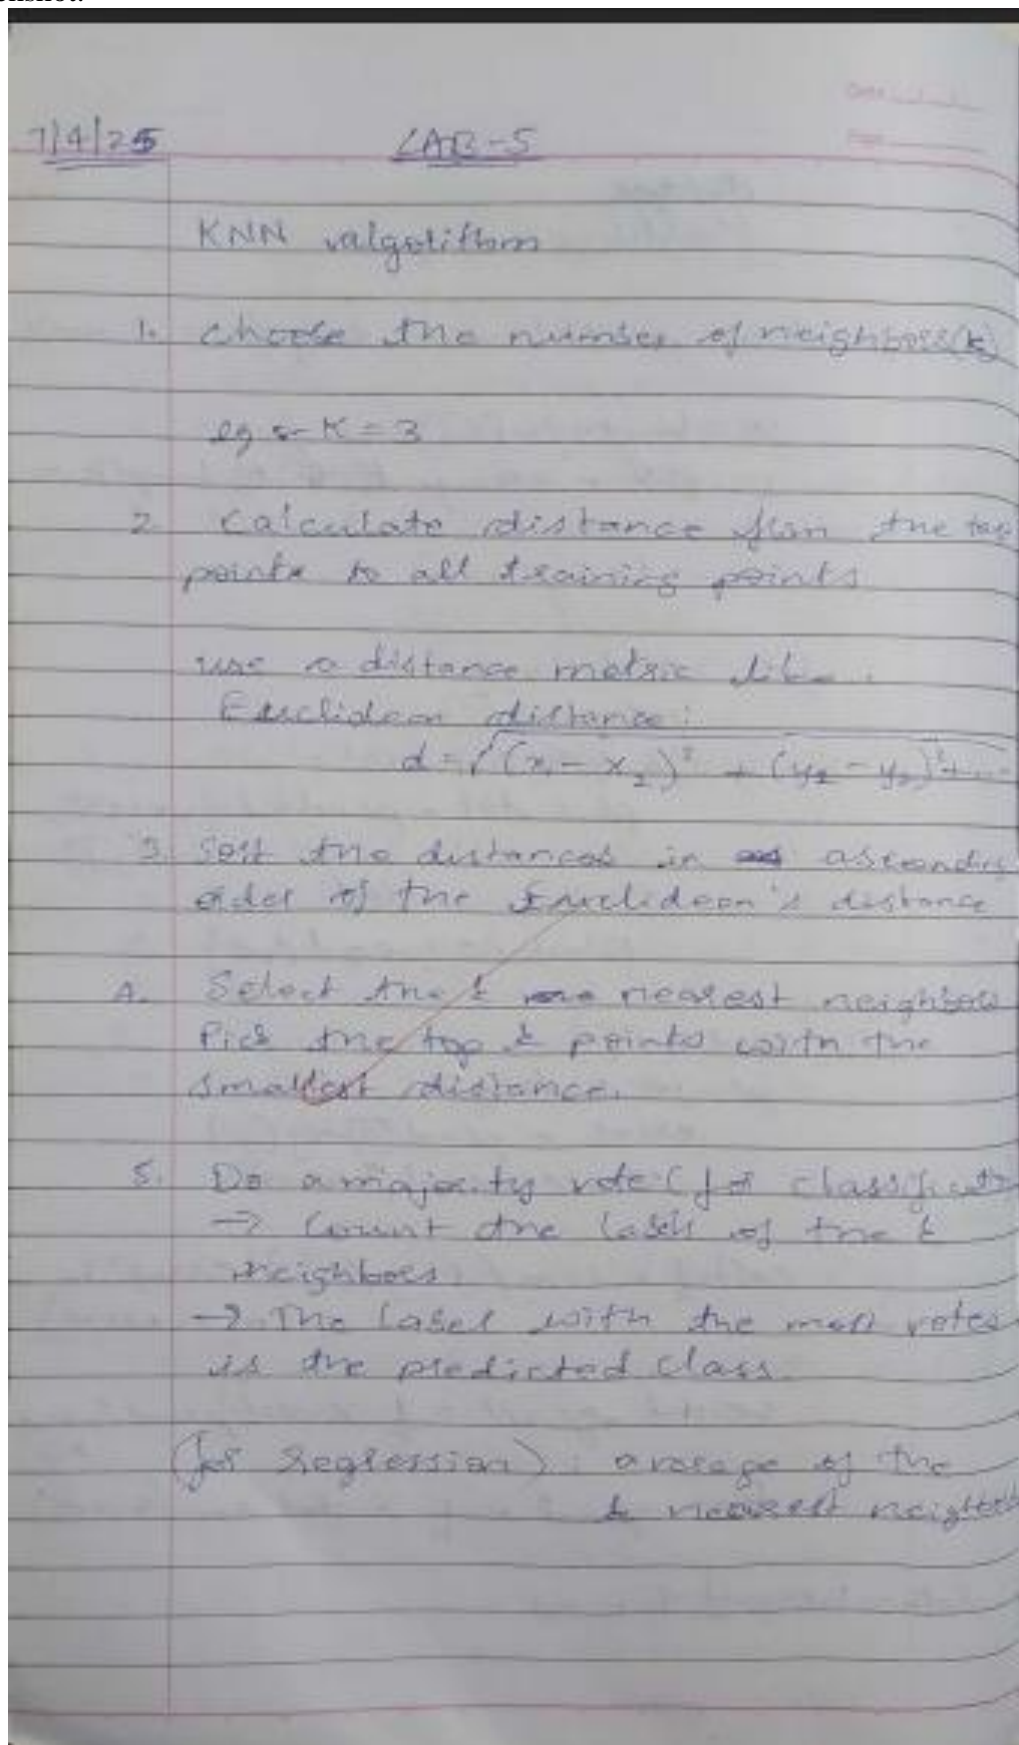 enshot.
Date
Page
7/4/25 LAB-5
KNN algorithm
1. Choose the number of neighbors(k)
eg :- K = 3
2. Calculate distance from the
points to all training points
use a distance metric like.
Euclidean distance:
d = √(x₁ - x₂)² + (y₂ - y₂)² + ...
3. Sort the distances in ascending
order of the Euclidean's distance
4. Select the k nearest neighbors
Pick the top k points with the
smallest distance.
5. Do a majority vote (for classificatn
→ Count the labels of the k
neighbors
→ The label with the most votes
is the predicted class.
(for Regression) : average of the
k nearest neighbors